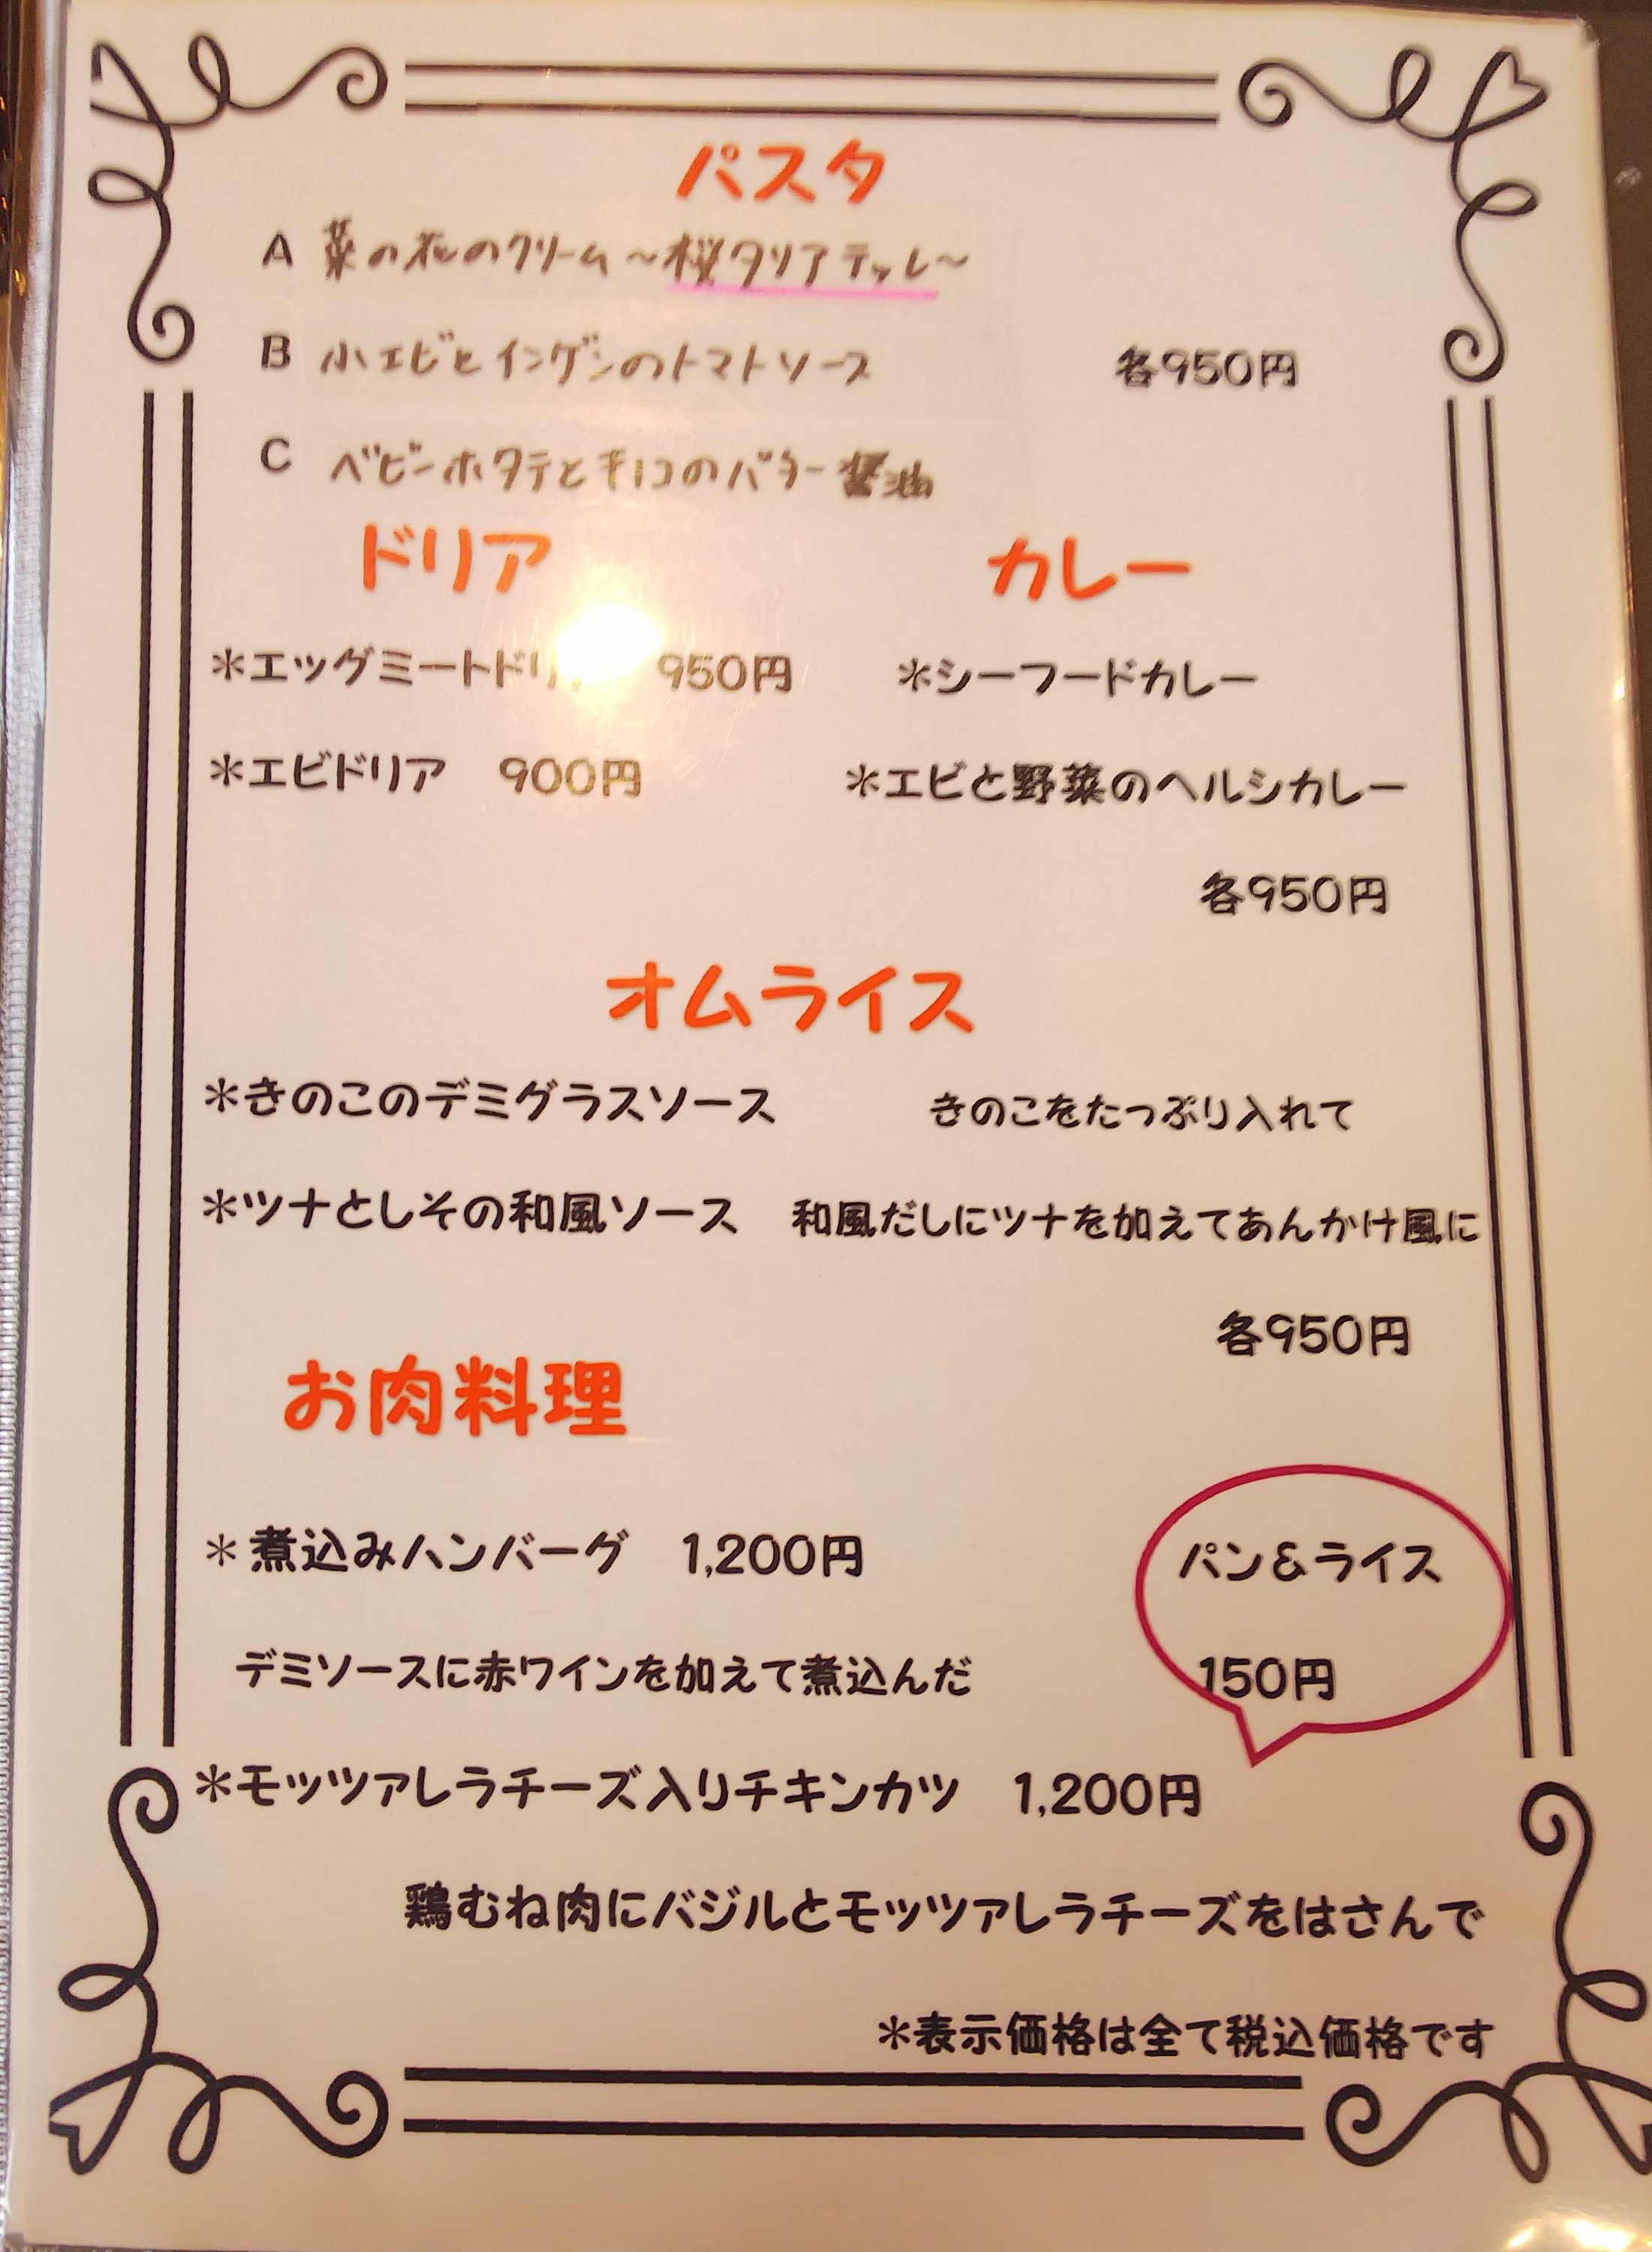 パスタ
A 菜の花のクリーム～桜タリアテッレ～
B 小エビとインゲンのトマトソース 各950円
C ベビーホタテとキノコのバター醤油
ドリア カレー
＊エッグミートドリ 950円 ＊シーフードカレー
＊エビドリア 900円 ＊エビと野菜のヘルシカレー
各950円
オムライス
＊きのこのデミグラスソース きのこをたっぷり入れて
＊ツナとしその和風ソース 和風だしにツナを加えてあんかけ風に
各950円
お肉料理
＊煮込みハンバーグ 1,200円 パン＆ライス
デミソースに赤ワインを加えて煮込んだ 150円
＊モッツァレラチーズ入りチキンカツ 1,200円
鶏むね肉にバジルとモッツァレラチーズをはさんで
＊表示価格は全て税込価格です